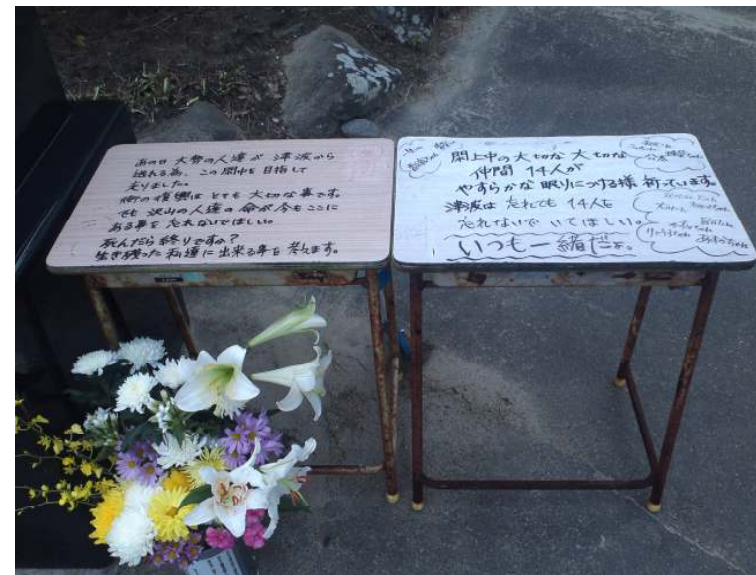 あの日大勢の人達が津波から
逃れる為、この閖中を目指して
走りました。
街の復興はとても大切な事です。
でも沢山の人達の命が今もここに
ある事を忘れないでほしい。
死んだら終りですか?
生き残った私達に出来る事を考えます。
閖上中の大切な大切な
仲間14人が
やすらかな眠りにつける様祈っています。
津波は忘れても14人を
忘れないでいてほしい。
いつも一緒だよ。